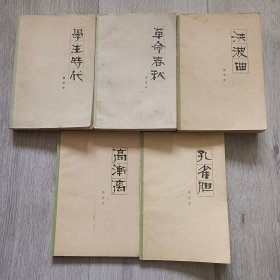 學生時代
革命春秋
洪波曲
高漸离
孔雀胆